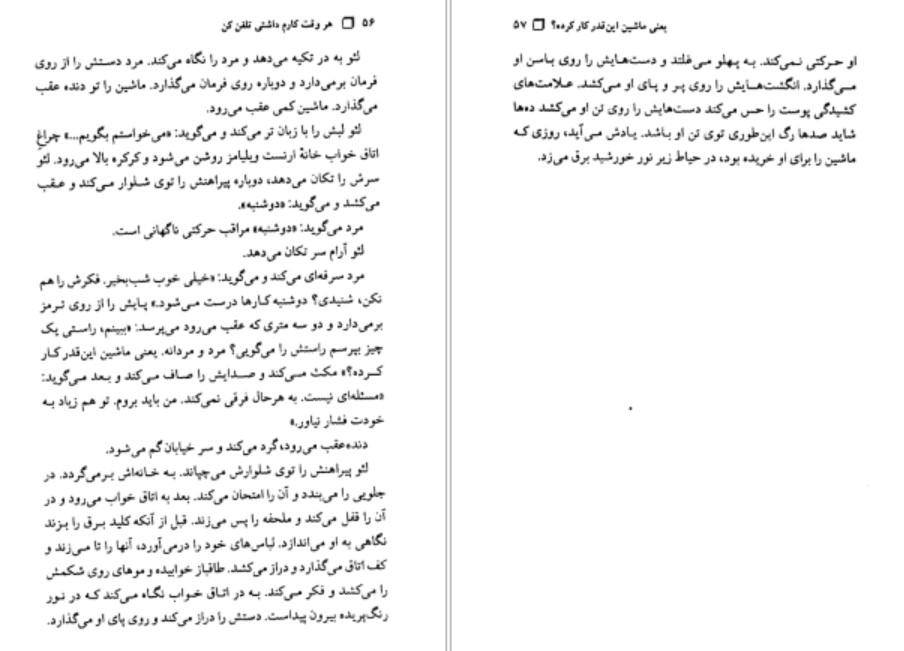 ۵۶ ❐ هر وقت کارم داشتی تلفن کن
لئو به در تکیه می‌دهد و مرد را نگاه می‌کند. مرد دستش را از روی
فرمان برمی‌دارد و دوباره روی فرمان می‌گذارد. ماشین را تو دنده عقب
می‌گذارد. ماشین کمی عقب می‌رود.
لئو لبش را با زبان تر می‌کند و می‌گوید: «می‌خواستم بگویم...» چراغ
اتاق خواب خانهٔ ارنست ویلیامز روشن می‌شود و کرکره بالا می‌رود. لئو
سرش را تکان می‌دهد، دوباره پیراهنش را توی شلوار می‌کند و عقب
می‌کشد و می‌گوید: «دوشنبه».
مرد می‌گوید: «دوشنبه» مراقب حرکتی ناگهانی است.
لئو آرام سر تکان می‌دهد.
مرد سرفه‌ای می‌کند و می‌گوید: «خیلی خوب شب‌بخیر. فکرش را هم
نکن، شنیدی؟ دوشنبه کارها درست می‌شود.» پایش را از روی ترمز
برمی‌دارد و دو سه متری که عقب می‌رود می‌پرسد: «ببینم، راستی یک
چیز بپرسم راستش را می‌گویی؟ مرد و مردانه. یعنی ماشین این‌قدر کار
کرده؟» مکث می‌کند و صدایش را صاف می‌کند و بعد می‌گوید:
«مسئله‌ای نیست. به هرحال فرقی نمی‌کند. من باید بروم. تو هم زیاد به
خودت فشار نیاور.»
دنده‌عقب می‌رود، گرد می‌کند و سر خیابان گم می‌شود.
لئو پیراهنش را توی شلوارش می‌چپاند. به خانه‌اش برمی‌گردد. در
جلویی را می‌بندد و آن را امتحان می‌کند. بعد به اتاق خواب می‌رود و در
آن را قفل می‌کند و ملحفه را پس می‌زند. قبل از آنکه کلید برق را بزند
نگاهی به او می‌اندازد. لباس‌های خود را درمی‌آورد، آنها را تا می‌زند و
کف اتاق می‌گذارد و دراز می‌کشد. طاقباز خوابیده و موهای روی شکمش
را می‌کشد و فکر می‌کند. به در اتاق خواب نگاه می‌کند که در نور
رنگ‌پریده بیرون پیداست. دستش را دراز می‌کند و روی پای او می‌گذارد.
یعنی ماشین این‌قدر کار کرده؟ ❐ ۵۷
او حرکتی نمی‌کند. به پهلو می‌غلتد و دست‌هایش را روی باسن او
می‌گذارد. انگشت‌هایش را روی پر و پای او می‌کشد. علامت‌های
کشیدگی پوست را حس می‌کند دست‌هایش را روی تن او می‌کشد ده‌ها
شاید صدها رگ این‌طوری توی تن او باشد. یادش می‌آید، روزی که
ماشین را برای او خریده بود، در حیاط زیر نور خورشید برق می‌زد.